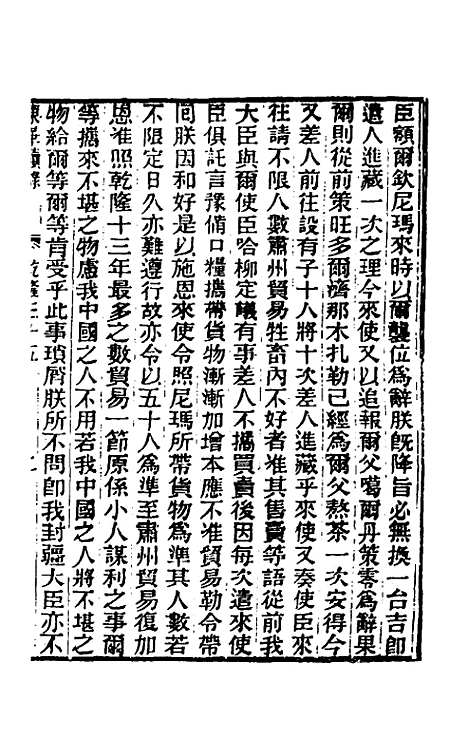 臣額爾欽尼瑪來時以爾襲位爲辭朕旣降旨必無換一台吉卽
遣人進藏一次之理今來使又以追報爾父噶爾丹策零爲辭果
爾則從前策旺多爾濟那木扎勒已經爲爾父熬茶一次安得今
又差人前往設有子十人將十次差人進藏乎來使又奏使臣來
往請不限人數肅州貿易牲畜內不好者准其售賣等語從前我
大臣與爾使臣哈柳定議有事差人不攜買賣後因每次遣來使
臣俱託言豫備口糧攜帶貨物漸漸加增本應不准貿易勒令帶
囘朕因和好是以施恩來使令照尼瑪所帶貨物爲準其人數若
不限定日久亦難遵行故亦令以五十人爲準至肅州貿易復加
恩准照乾隆十三年最多之數貿易一節原係小人謀利之事爾
等攜來不堪之物慮我中國之人不用若我中國之人將不堪之
物給爾等爾等肯受乎此事瑣屑朕所不問卽我封疆大臣亦不
東華續錄 乾隆三十五